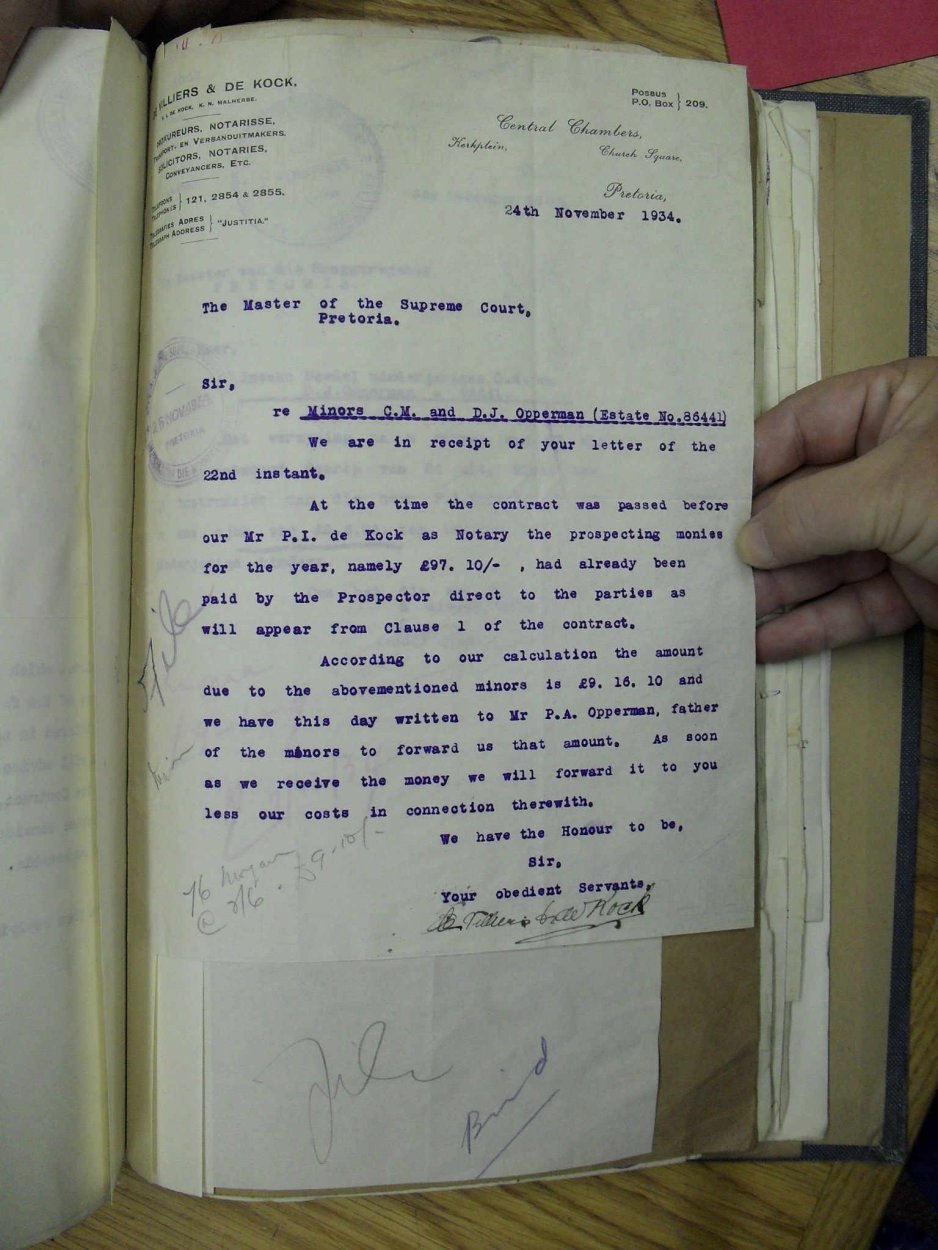 VILLIERS & DE KOCK.
DE KOCK. K. N. MALHERBE.
PROKUREURS, NOTARISSE,
TRANSPORT- EN VERBANDUITMAKERS.
SOLICITORS, NOTARIES,
CONVEYANCERS, ETC.
TELEFOONS
TELEPHONES } 121, 2854 & 2855.
TELEGRAFIES ADRES
TELEGRAPH ADDRESS } "JUSTITIA."
POSBUS
P.O. BOX } 209.
Central Chambers,
Kerkplein, Church Square,
Pretoria,
24th November 1934.
The Master of the Supreme Court,
Pretoria.
Sir,
re Minors C.M. and D.J. Opperman (Estate No.86441)
We are in receipt of your letter of the
22nd instant.
At the time the contract was passed before
our Mr P.I. de Kock as Notary the prospecting monies
for the year, namely £97. 10/- , had already been
paid by the Prospector direct to the parties as
will appear from Clause 1 of the contract.
According to our calculation the amount
due to the abovementioned minors is £9. 16. 10 and
we have this day written to Mr P.A. Opperman, father
of the minors to forward us that amount. As soon
as we receive the money we will forward it to you
less our costs in connection therewith.
We have the Honour to be,
Sir,
Your obedient Servants,
de Villiers & de Kock
File
76 morgan
@ 2/6 . £9-10/-
NOVEMBER
PRETORIA
File
Bind